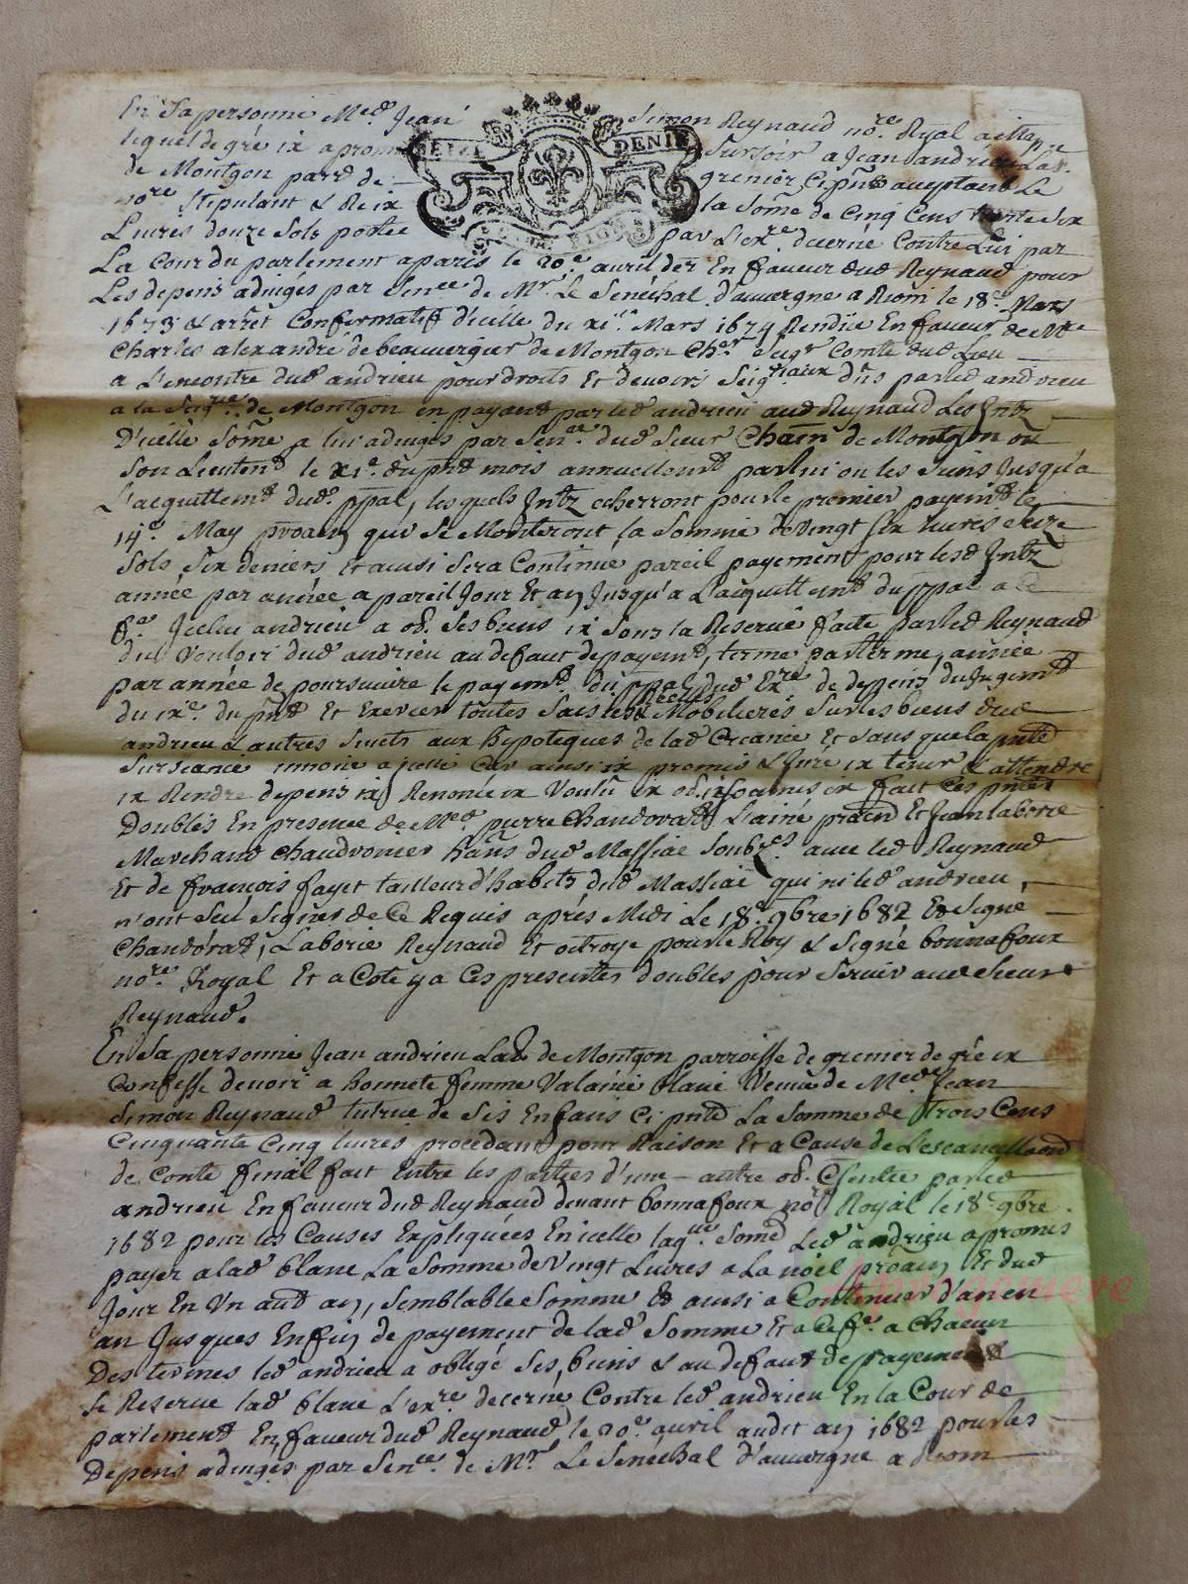 En Sa personne Me. Jean Simon Reynaud nore. Royal
lequel de gré ix a promis Sursoir a Jean andrieu Lab.
de Montgon parre. de grenier Ci pnt. acceptant Le
nore. Stipulant & Re ix la Some de Cinq Cens trente Six
Livres douze Sols portée par L'exre. decerné Contre Lui par
La Cour du parlement a paris le 20e. avril der. En faveur dud Reynaud pour
Les depens adiugés par Sence. de Mr. Le Senéchal d'auvergne a Riom le 18e. Mars
1673 & arrêt Confirmatif d'icelle du xie. Mars 1674 Rendüe En faveur de Mre
Charles alexandre de beauverger de Montgon Cher. Seigr Comte dud Lieu
a L'encontre dud andrieu pour droits Et devoirs Seigriaux dûs par led andrieu
a la Seigrie. de Montgon en payant par led andrieu aud Reynaud Les Intz
D'icelle Sôme a lui adiugés par Sence. dud Sieur Chaën de Montgon ou
Son Lieutent le xie. du pnt mois annuellemt par lui ou les Siens Jusqu'a
L'acquittemt dud. ppal, lesquels Intz echerront pour le premier payemt le
14e. May proain qui Se Monteront la Somme de vingt Six Livres Seize
Sols Six deniers Et aussi Sera Continué pareil payement pour lesd Intz
année par année a pareil Jour Et an Jusqu'a L'acquittemt du ppal a Ce
fe. Icelui andrieu a ob. Ses biens ix Sous la Reserve faite par led Reynaud
du Vouloir dud andrieu au defaut de payemt, terme par terme, année
par année de poursuivre le payemt. du ppal dud Exre. de depens du Jugemt
du ixe. du pnt Et Exercer toutes Saisies Réelles & Mobilieres Sur les biens dud
andrieu & autres Suiets aux hypoteques de lad Creance Et Sans que la pnte
Surseance innove a icelle Car ainsi ix promis & Jure ix tenir & attendre
ix Rendre depens ix Renoncé ix Voulu ix ob. ix Soumis ix fait Ces pntes
Doubles En presence de Me. pierre Chandorat L'ainé praen Et Jean laborie
Marchand Chaudronier habns dud Massiac Soubzes avec led Reynaud
Et de françois fayet tailleur d'habits dud Massiac qui ni led andrieu,
n'ont Seu Signer de Ce Requis après Midi Le 18e. 9bre 1682 Et Signé
Chandorat, Laborie Reynaud Et octroyé pour le Roy & Signé bonnafoux
nore. Royal Et a Coté y a Ces presentes doubles pour Servir aud Sieur
Reynaud.
En Sa personne Jean andrieu Labr de Montgon parroisse de grenier de gré ix
Confesse devoir a honnete femme Valaine blanc Veuve de Me Jean
Simon Reynaud tutrice de Ses Enfans Ci pnte La Somme de trois Cens
Cinquante Cinq livres procedant pour Raison Et a Cause de
de Conte final fait Entre les parties d'une autre ob. Consentie par led
andrieu En faveur dud Reynaud devant bonnafoux nore Royal le 18e 9bre.
1682 pour les Causes Expliquées En icelle laque. Some Led andrieu a promis
payer a lad blanc La Somme de Vingt Livres a La noël proain Et dud
Jour En Un aud an, Semblable Somme Et aussi a Continuer d'an en
an Jusques Enfin de payement de lad Somme Et a Ce fe. a Chacun
Des termes led andrieu a obligé Ses biens & au defaut de payement
Se Reserve lad blanc L'exre. decerné Contre led andrieu En la Cour de
parlement En faveur dud Reynaud le 20e. avril audit an 1682 pour les
Depens adiugés par Sence. de Mr. Le Senechal d'auvergne a Riom